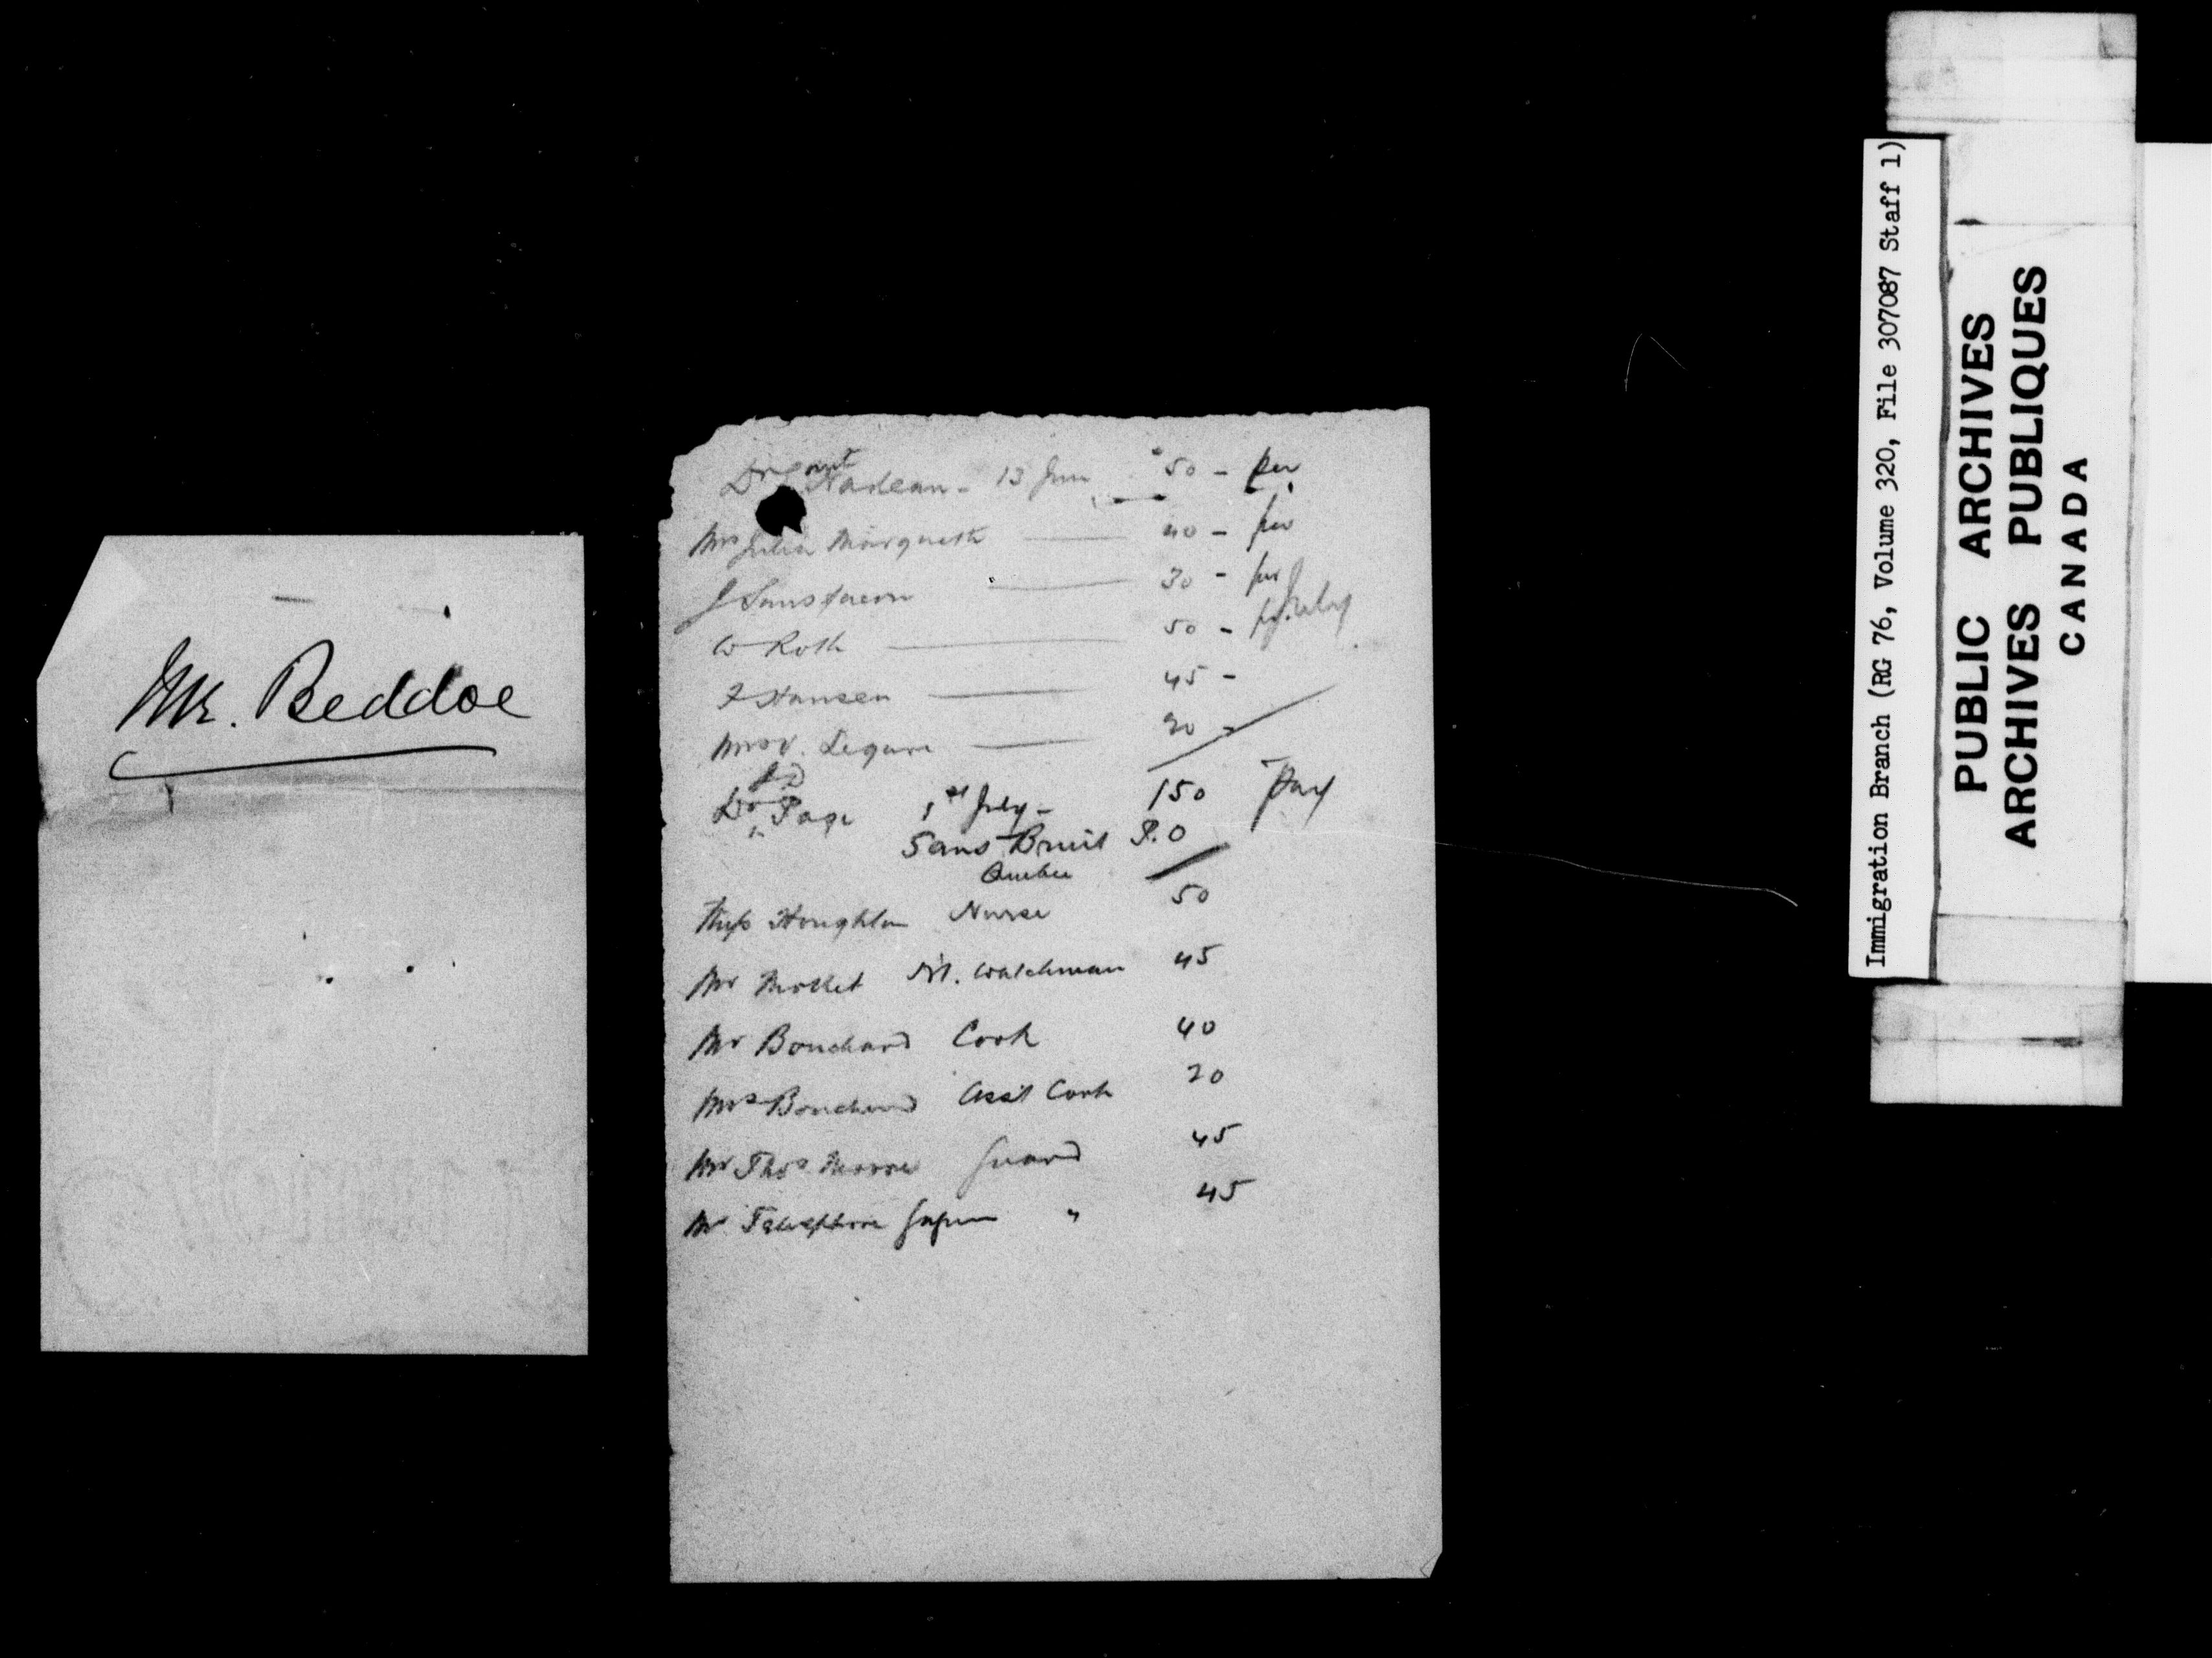 Mr. Beddoe
Dr Nadeau - 13 Jun $50 - per
Mrs Julia Marquette 40 - per
J Sansfacon 30 - per
W Roth 50 -
F Hansen 45 -
Mrs V. Legare 20 -
J D
Dr Page 1st July - 150 Pay
Sans Bruit P.O
Quebec
Miss Houghton Nurse 50
Mr Mollet Nt. Watchman 45
Mr Bouchard Cook 40
Mrs Bouchard Asst Cook 20
Mr Thos Morrow Guard 45
Mr Telesphore " 45
Immigration Branch (RG 76, Volume 320, File 307087 Staff 1)
PUBLIC ARCHIVES
ARCHIVES PUBLIQUES
CANADA